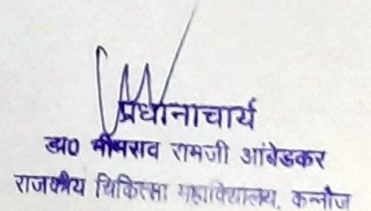 प्रधानाचार्य
डा0 भीमराव रामजी आंबेडकर
राजकीय चिकित्सा महाविद्यालय, कन्नौज